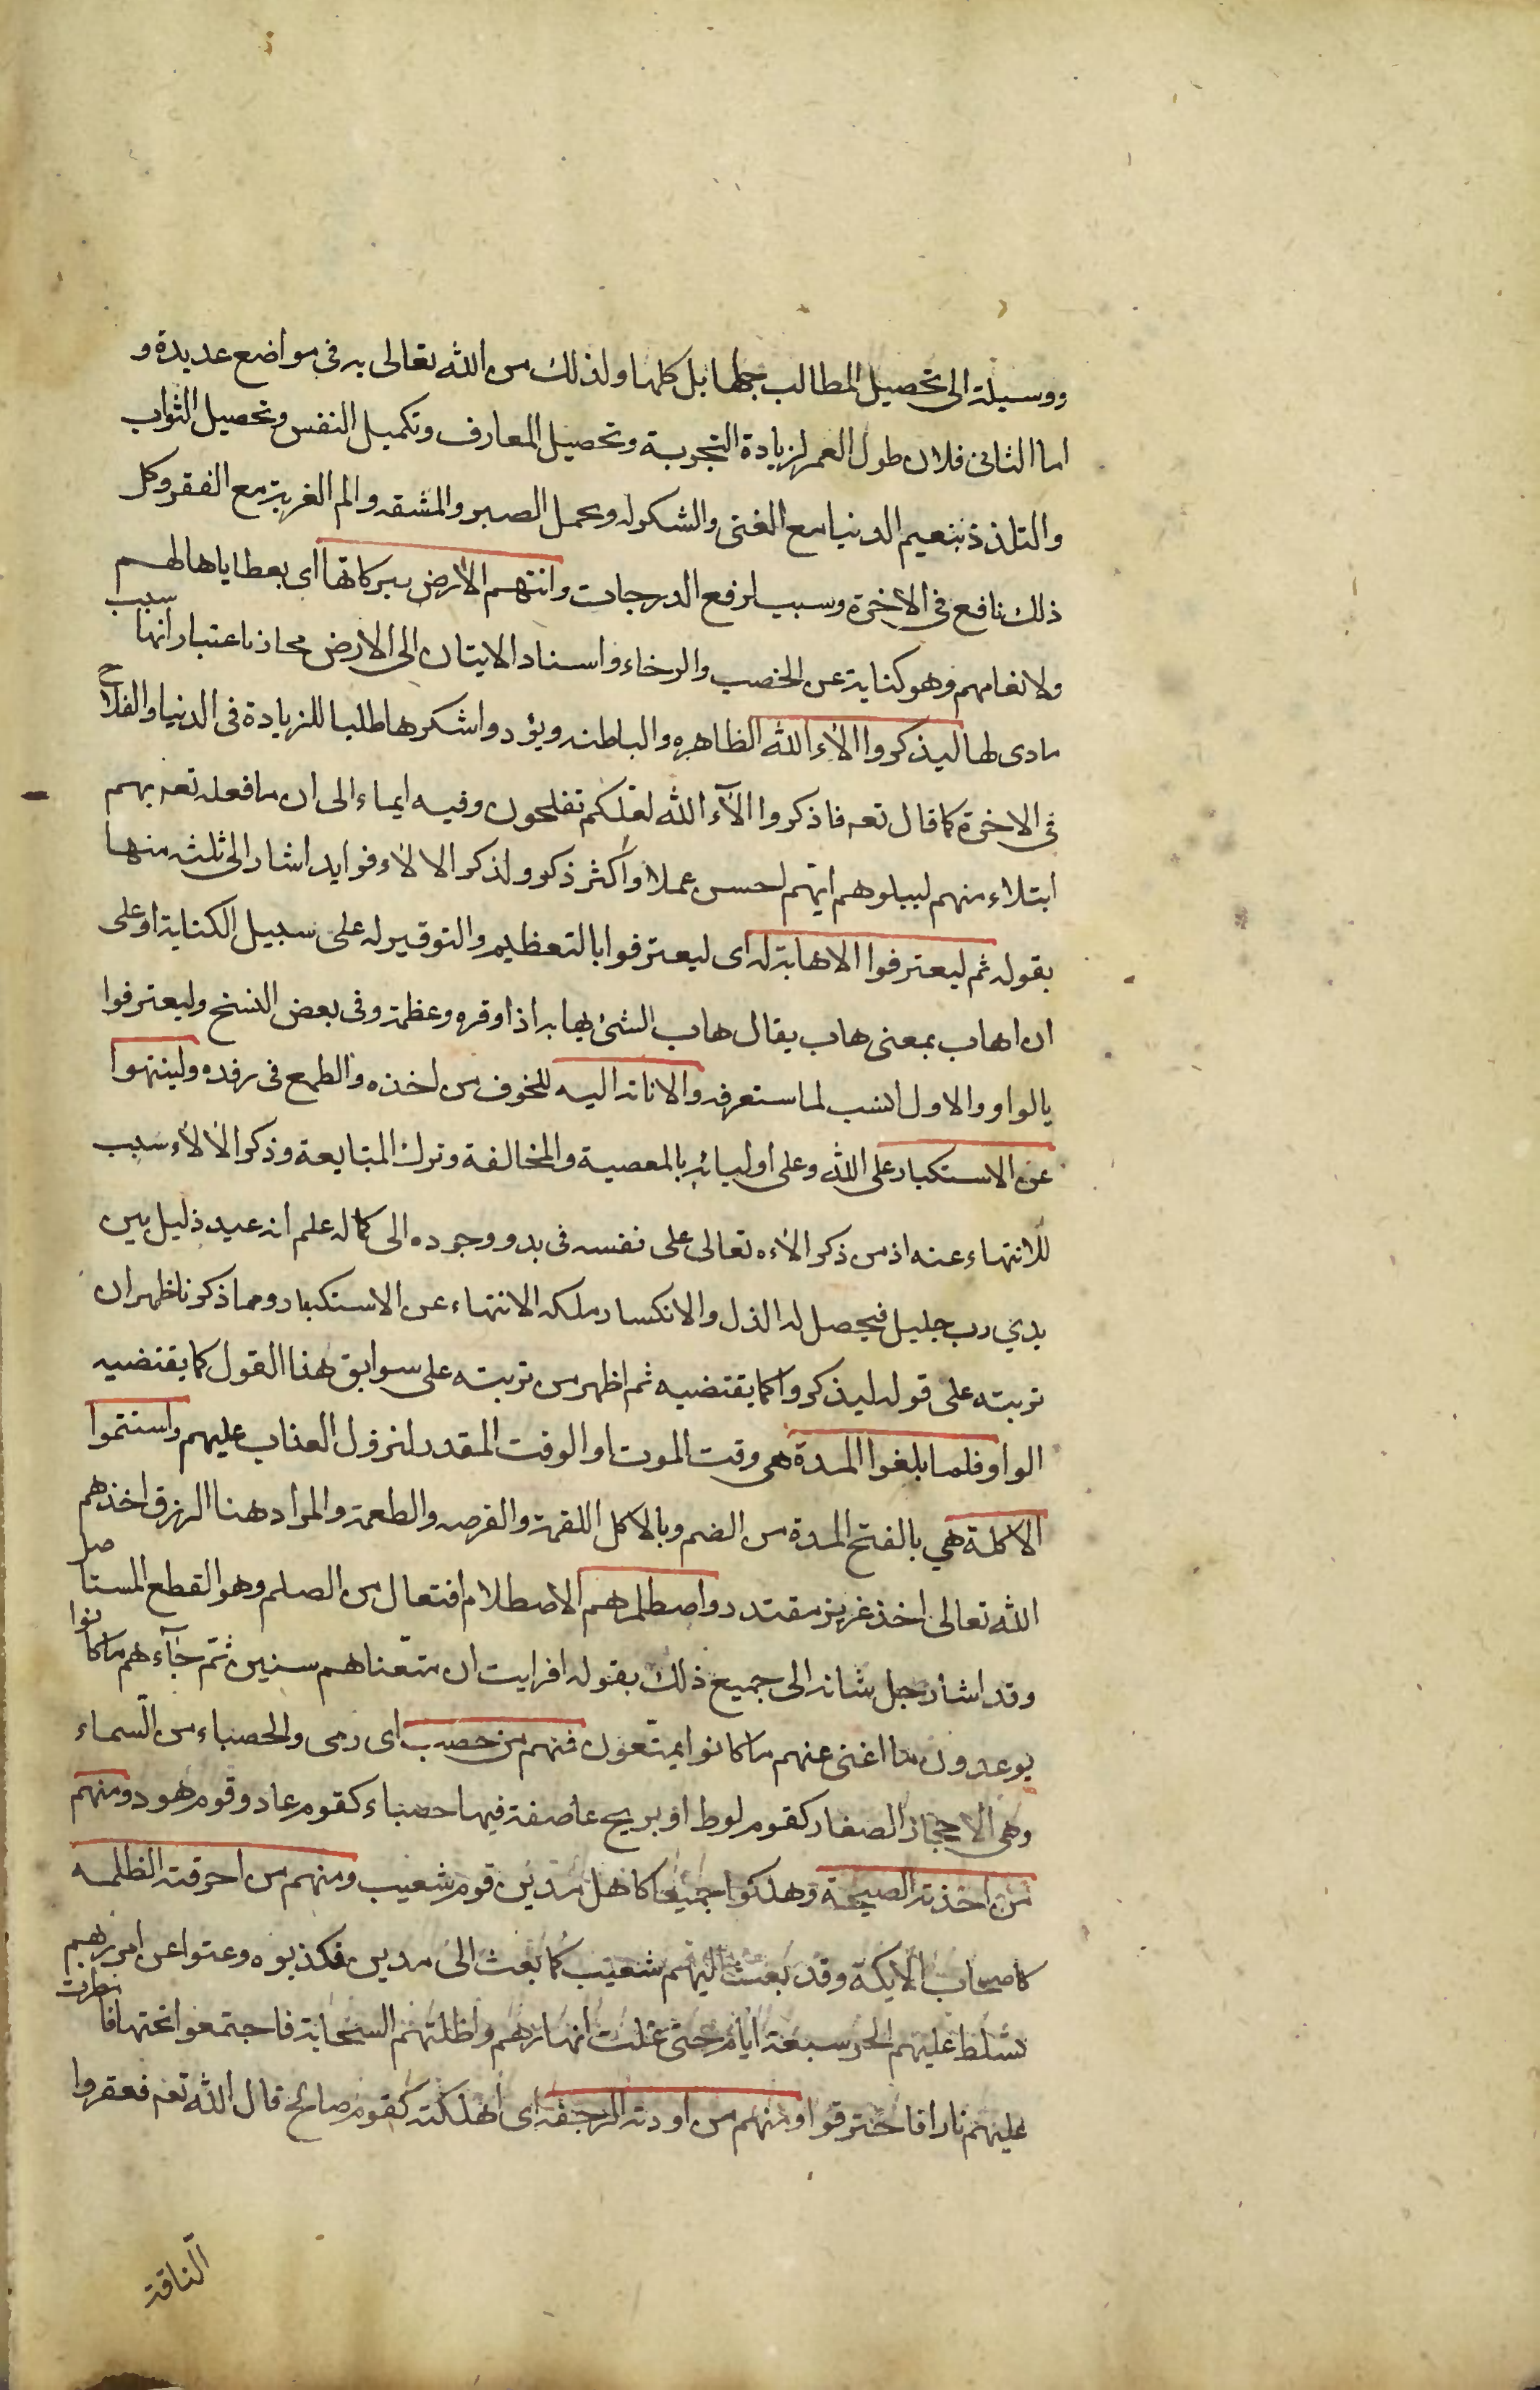 ووسيلة الى تحصيل المطالب جلها بل كلها ولذلك من الله تعالى به فى مواضع عديدة و
اما الثانى فلان طول العمر لزيادة التجربة وتحصيل المعارف وتكميل النفس وتحصيل الثواب
والتلذذ بنعيم الدنيا مع الغنى والشكر له وتحمل الصبر والمشقه والم الغربة مع الفقر وكل
ذلك نافع فى الاخرة وسبب لرفع الدرجات واتتهم الأرض ببركاتها اى بعطاياها لهم
ولانعامهم وهو كناية عن الخصب والرخاء واسناد الايتان الى الارض مجاز باعتبار انها سبب
مادى لها ليذكروا الاء الله الظاهره والباطنه ويؤدوا شكرها طلبا للزيادة فى الدنيا والفلاح
فى الاخرة كما قال تعه فاذكروا الآء الله لعلكم تفلحون وفيه ايماء الى ان ما فعله تعه بهم
ابتلاء منهم ليبلوهم ايهم احسن عملا واكثر ذكر ولذكر الالاء فوايد اشار الى ثلثه منها
بقوله ثم ليعترفوا الاهابة له اى ليعترفوا بالتعظيم والتوقير له على سبيل الكناية او على
ان اهاب بمعنى هاب يقال هاب الشئ يهابه اذا وقره وعظمه وفى بعض النسخ وليعترفوا
بالواو والاول انسب لما ستعرفه والانابة اليه للخوف من اخذه والطمع فى رفده ولينتهوا
عن الاستكبار على الله وعلى اوليائه بالمعصية والمخالفة وترك المتابعة وذكر الالاء سبب
للانتهاء عنه اذ من ذكر الاءه تعالى على نفسه فى بدو وجوده الى كماله علم انه عبد ذليل بين
يدي رب جليل فيحصل له الذل والانكسار وملكه الانتهاء عن الاستكبار ومما ذكرنا ظهر ان
تربته على قوله ليذكروا كما يقتضيه ثم اظهر من تربته على سوابق هذا القول كما يقتضيه
الواو فلما بلغوا المدة هى وقت الموت او الوقت المقدر لنزول العذاب عليهم واستتموا
الاكلة هي بالفتح المدة من الضم وبالاكل اللقمة والقرصه والطعمة والمراد هنا الرزق اخذهم
الله تعالى اخذ عزيز مقتدر واصطلمهم الاصطلام افتعال من الصلم وهو القطع المستاصل
وقد اشار جل شانه الى جميع ذلك بقوله افرايت ان متّعناهم سنين ثم جآءهم ما كانوا
يوعدون ما اغنى عنهم ما كانوا يمتّعون فمنهم من حصب اى رمى والحصباء من السماء
وهى الاحجار الصغار كقوم لوط او بريح عاصفة فيها حصباء كقوم عاد وقوم هود ومنهم
من اخذته الصيحة وهلكوا جميعا كاهل مدين قوم شعيب ومنهم من احرقته الظلمه
كاصحاب الايكة وقد بعث اليهم شعيب كما بعث الى مدين فكذبوه وعتوا عن امر ربهم
فسلط عليهم الحر سبعة ايام حتى غلت انهارهم واظلتهم السحابة فاجتمعوا تحتها فامطرت
عليهم نارا فاحترقوا ومنهم من اودته الرجفه اى اهلكته كقوم صالح قال الله تعه فعقروا
الناقة